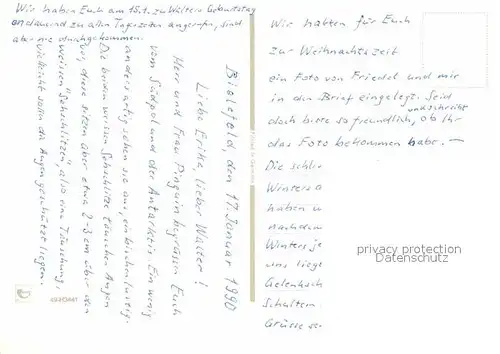 Wir haben Euch am 15.1. zu Walters Geburtstag
andauernd zu allen Tageszeiten angerufen, sind
aber nie durchgekommen.
Bielefeld, den 17. Januar 1990
Liebe Erika, lieber Walter!
Herr und Frau Pinguin begrüssen Euch
vom Südpol und der Antarktis. Ein wenig
andersartig sehen sie aus, ein bisschen lustig.
Die beiden weissen Sehschlitze täuschen Augen
vor, diese sitzen aber etwa 2-3 cm über den
weissen "Sehschlitzen", also eine Täuschung,
vielleicht sollen die Augen geschützt liegen.
Wir hatten für Euch
zur Weihnachtszeit
ein Foto von Friedel und mir
in den Brief eingelegt. Seid
doch bitte so freundlich, und schreibt
ob Ihr
das Foto bekommen habt. —
Die schli
Winters a
haben u
nachdem
Winters je
uns liegt
Gelenksch
Schultern
Grüsse se
privacy protection
Datenschutz